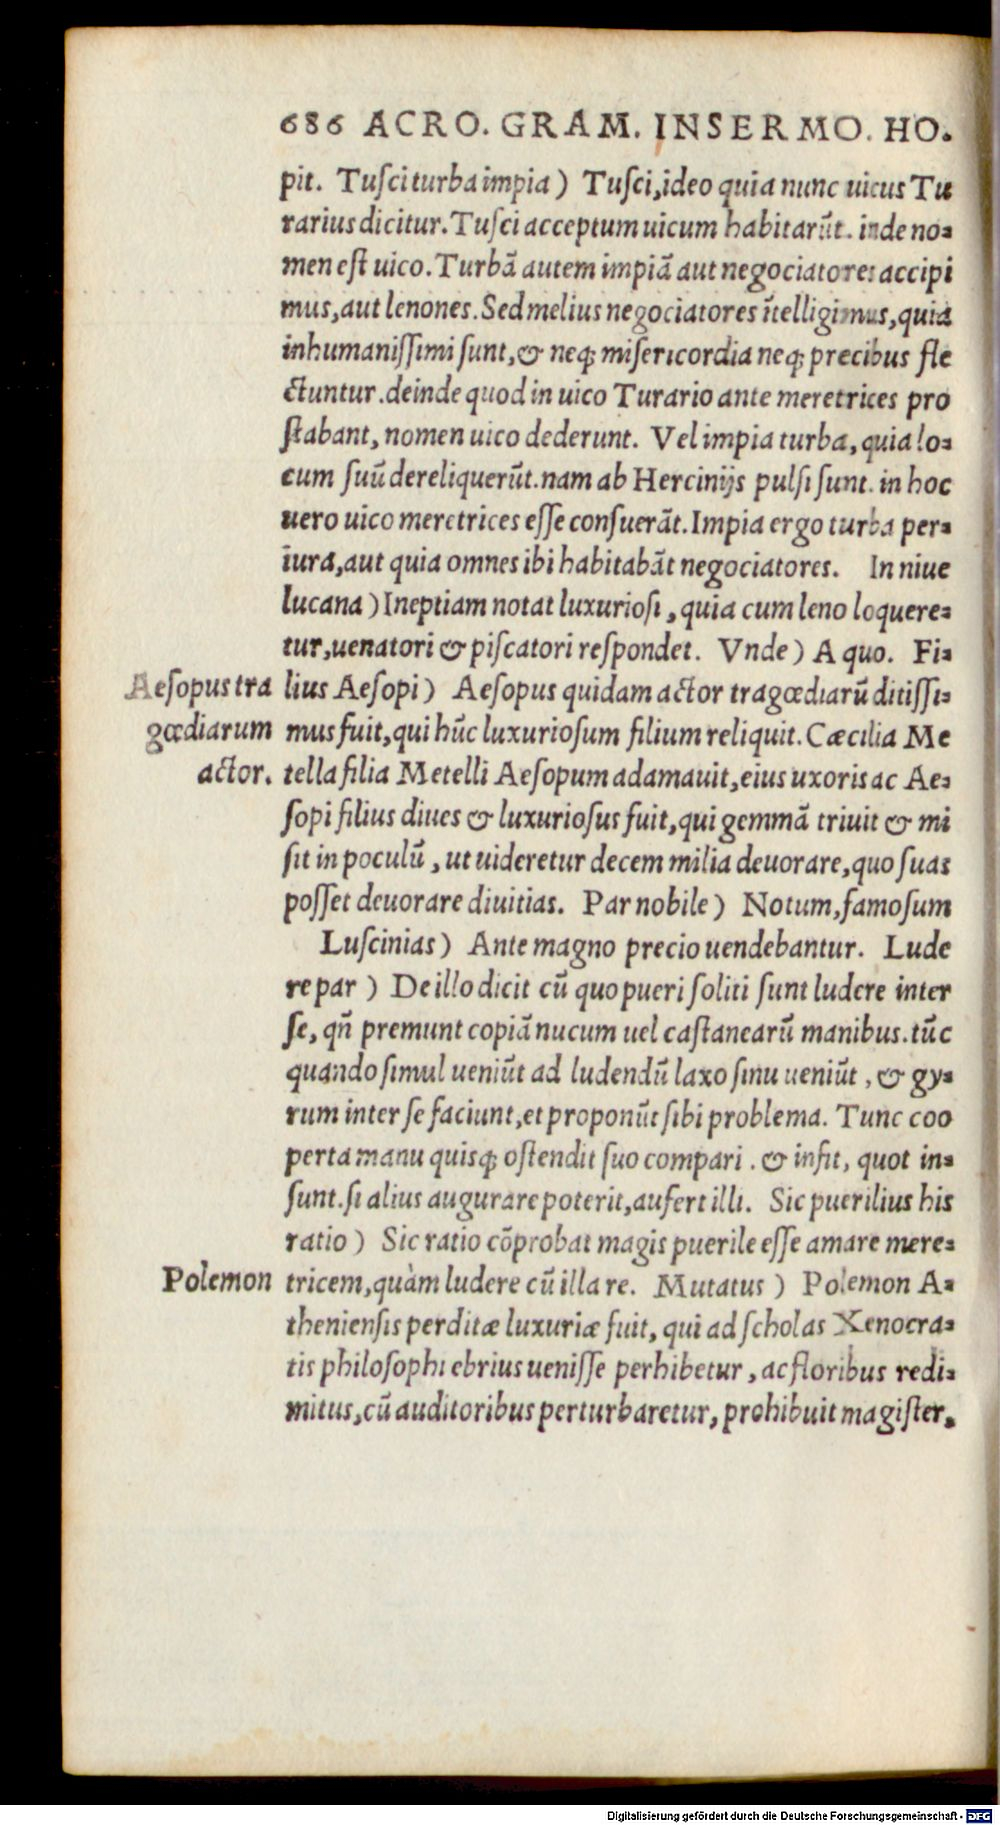 686 ACRO. GRAM. IN SERMO. HO.
pit. Tuſci turba impia) Tuſci, ideo quia nunc uicus Tu
rarius dicitur. Tuſci acceptum uicum habitarūt. inde no⸗
men eſt uico. Turbā autem impiā aut negociatores accipi
mus, aut lenones. Sed melius negociatores ītelligimus, quia
inhumaniſſimi ſunt, & neqꝫ miſericordia neqꝫ precibus fle
ctuntur. deinde quod in uico Turario ante meretrices pro
ſtabant, nomen uico dederunt. Vel impia turba, quia lo⸗
cum ſuū dereliquerūt. nam ab Hercinijs pulſi ſunt. in hoc
uero uico meretrices eſſe conſuerāt. Impia ergo turba per⸗
iura, aut quia omnes ibi habitabāt negociatores. In niue
lucana) Ineptiam notat luxurioſi, quia cum leno loquere⸗
tur, uenatori & piſcatori reſpondet. Vnde) A quo. Fi⸗
Aeſopus tra lius Aeſopi) Aeſopus quidam actor tragœdiarū ditiſſi⸗
gœdiarum mus fuit, qui hūc luxurioſum filium reliquit. Cæcilia Me
actor. tella filia Metelli Aeſopum adamauit, eius uxoris ac Ae⸗
ſopi filius diues & luxurioſus fuit, qui gemmā triuit & mi
ſit in poculū, ut uideretur decem milia deuorare, quo ſuas
poſſet deuorare diuitias. Par nobile) Notum, famoſum
Luſcinias) Ante magno precio uendebantur. Lude
re par) De illo dicit cū quo pueri ſoliti ſunt ludere inter
ſe, qñ premunt copiā nucum uel caſtanearū manibus. tūc
quando ſimul ueniūt ad ludendū laxo ſinu ueniūt, & gy⸗
rum inter ſe faciunt, et proponūt ſibi problema. Tunc coo
perta manu quisqꝫ oſtendit ſuo compari. & infit, quot in⸗
ſunt. ſi alius augurare poterit, aufert illi. Sic puerilius his
ratio) Sic ratio cōprobat magis puerile eſſe amare mere⸗
Polemon tricem, quàm ludere cū illa re. Mutatus) Polemon A⸗
thenienſis perditæ luxuriæ fuit, qui ad ſcholas Xenocra⸗
tis philoſophi ebrius ueniſſe perhibetur, ac floribus redi⸗
mitus, cū auditoribus perturbaretur, prohibuit magiſter,
Digitalisierung gefördert durch die Deutsche Forschungsgemeinschaft - DFG